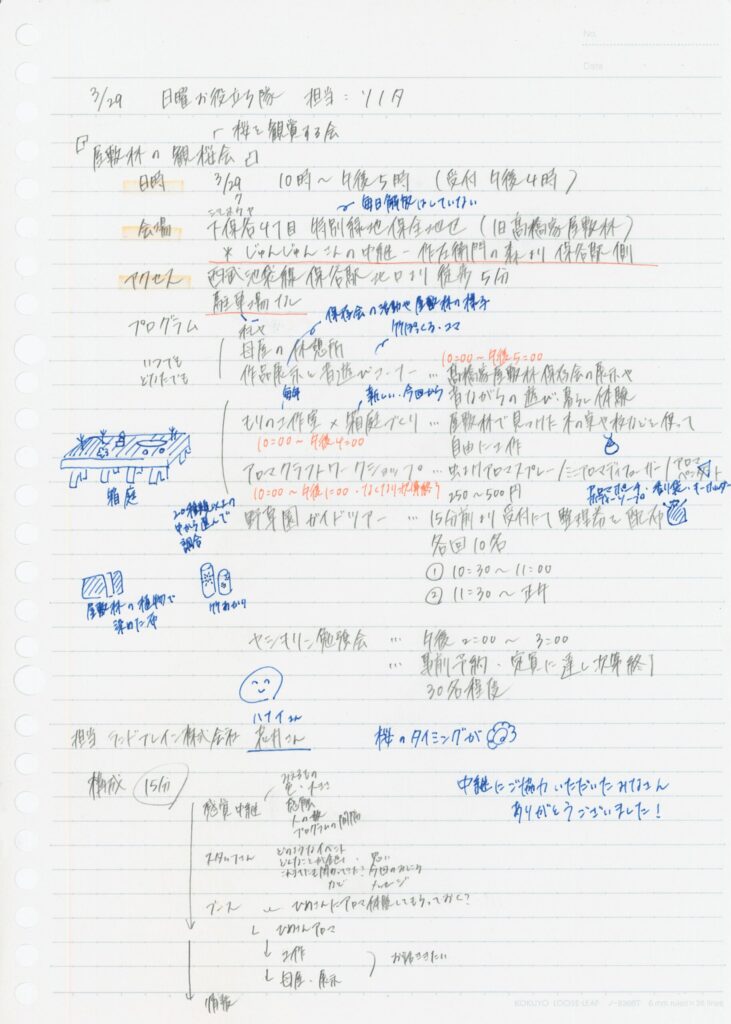 No.
Date
3/29 日曜お役立ち隊 担当：ソノダ
桜を観賞する会
『屋敷林の観桜会』
日時 3/29 10時～午後5時 (受付 午後4時)
毎日解放はしていない
会場 下保谷4丁目 特別緑地保全地区 (旧高橋家屋敷林)
＊じゅんじゅんさんの中継 - 作左衛門の森より 保谷駅側
アクセス 西武池袋線 保谷駅 北口より 徒歩5分
駐車場ナシ
保存会の活動や屋敷林の様子
プログラム
竹ぽっくり・コマ
いつでも 母屋の休憩所
10:00～午後5:00
どなたでも 作品展示と昔遊びコーナー … 高橋家屋敷林保存会の展示や
毎年 新しい・今回から 昔ながらの遊び、暮らし体験
もりの工作室×箱庭づくり … 屋敷林で見つけた木の実や枝などを使って
10:00～午後4:00 自由に工作
箱庭
アロマクラフトワークショップ … 虫よけアロマスプレー/ミニアロマディフューザー/アロマペンダント
10:00～午後1:00・なくなり次第終了 250～500円
20種類以上の
中から選んで
調合
野草園ガイドツアー … 15分前より受付にて整理券を配布
各回10名
① 10:30～11:00
② 11:30～正午
屋敷林の植物で
染めた布
竹あかり
ヤシオリン勉強会 … 午後2:00～3:00
… 事前予約・定員に達し次第終了
30名程度
ハナイさん
担当 ランドブレイン株式会社 花井さん
桜のタイミングが
構成 15分
中継にご協力いただいたみなさん
ありがとうございました！
感覚中継 みえるもの
人の数
プログラムの間隔
スタッフさん どのようなイベント
今回のみどころ
メッセージ
ブース ひめさんにアロマ体験してもらっておく？
ひめさんアロマ
工作
お話ききたい
母屋・展示
情報
KOKUYO LOOSE-LEAF ノ-836BT 6 mm ruled×36 lines